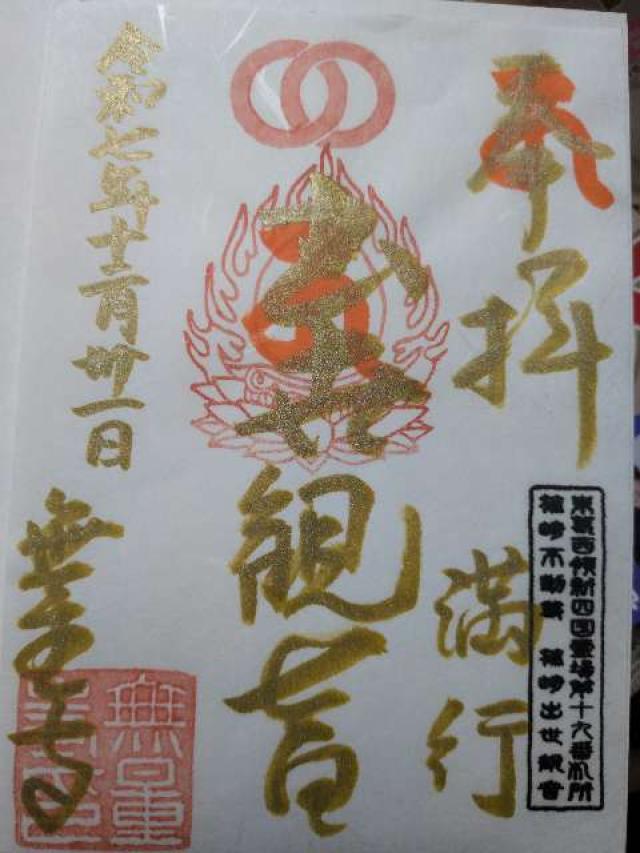 奉拝
満行
東葛西領新四国霊場第十九番札所
不動尊 出世観音
出世観音
令和七年十二月卅一日
無量寺
無量